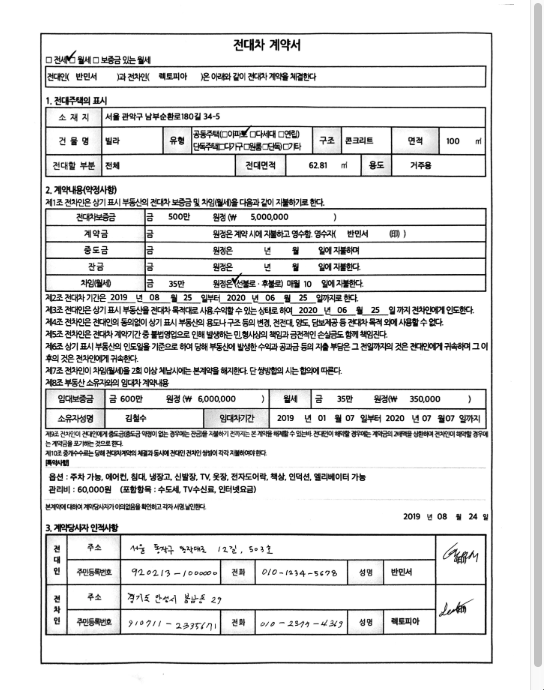 전대차 계약서
□ 전세 □ 월세 □ 보증금 있는 월세
전대인( 반민서 )과 전차인( 렉토피아 )은 아래와 같이 전대차 계약을 체결한다
1. 전대주택의 표시
소 재 지 서울 관악구 남부순환로180길 34-5
건 물 명 빌라 유형 공동주택(□아파트 □다세대 □연립) 구조 콘크리트 면적 100 ㎡
단독주택(□다가구 □원룸 □단독) □기타
전대할 부분 전체 전대면적 62.81 ㎡ 용도 거주용
2. 계약내용(약정사항)
제1조 전차인은 상기 표시 부동산의 전대차 보증금 및 차임(월세)을 다음과 같이 지불하기로 한다.
전대차보증금 금 500만 원정 (₩ 5,000,000 )
계 약 금 금 원정은 계약 시에 지불하고 영수함. 영수자( 반민서 (印) )
중 도 금 금 원정은 년 월 일에 지불하며
잔 금 금 원정은 년 월 일에 지불한다.
차임(월세) 금 35만 원정은 (선불로 · 후불로) 매월 10 일에 지불한다.
제2조 전대차 기간은 2019 년 08 월 25 일부터 2020 년 06 월 25 일까지로 한다.
제3조 전대인은 상기 표시 부동산을 전대차 목적대로 사용,수익할 수 있는 상태로 하여 2020 년 06 월 25 일 까지 전차인에게 인도한다.
제4조 전차인은 전대인의 동의없이 상기 표시 부동산의 용도나 구조 등의 변경, 전전대, 양도, 담보제공 등 전대차 목적 외에 사용할 수 없다.
제5조 전차인은 전대차 계약기간 중 불법영업으로 인해 발생하는 민,형사상의 책임과 금전적인 손실금도 함께 책임진다.
제6조 상기 표시 부동산의 인도일을 기준으로 하여 당해 부동산에 발생한 수익과 공과금 등의 지출 부담은 그 전일까지의 것은 전대인에게 귀속하며 그 이
후의 것은 전차인에게 귀속한다.
제7조 전차인이 차임(월세)을 2회 이상 체납시에는 본계약을 해지한다. 단 쌍방합의 시는 합의에 따른다.
제8조 부동산 소유자와의 임대차 계약내용
임대보증금 금 600만 원정 (₩ 6,000,000 ) 월세 금 35만 원정(₩ 350,000 )
소유자성명 김철수 임대차기간 2019 년 01 월 07 일부터 2020 년 07 월 07 일까지
제9조 전차인이 전대인에게 중도금(중도금 약정이 없는 경우에는 잔금)을 지불하기 전까지는 본 계약을 해제할 수 있는바, 전대인이 해약할 경우에는 계약금의 2배액을 상환하며 전차인이 해약할 경우에
는 계약금을 포기하는 것으로 한다.
제10조 중개수수료는 당해 전대차계약의 체결과 동시에 전대인 전차인 쌍방이 각각 지불하여야 한다.
[특약사항]
옵션 : 주차 가능, 에어컨, 침대, 냉장고, 신발장, TV, 옷장, 전자도어락, 책상, 인덕션, 엘리베이터 가능
관리비 : 60,000원 (포함항목 : 수도세, TV수신료, 인터넷요금)
본계약에 대하여 계약당사자가 이의없음을 확인하고 각자 서명 날인한다.
2019 년 08 월 24 일
3. 계약당사자 인적사항
전대인 주소 서울 동작구 동작대로 12길, 503호
주민등록번호 920213-1000000 전화 010-1234-5678 성명 반민서
전차인 주소 경기도 안성시 봉남동 27
주민등록번호 910711-2335671 전화 010-2377-4369 성명 렉토피아